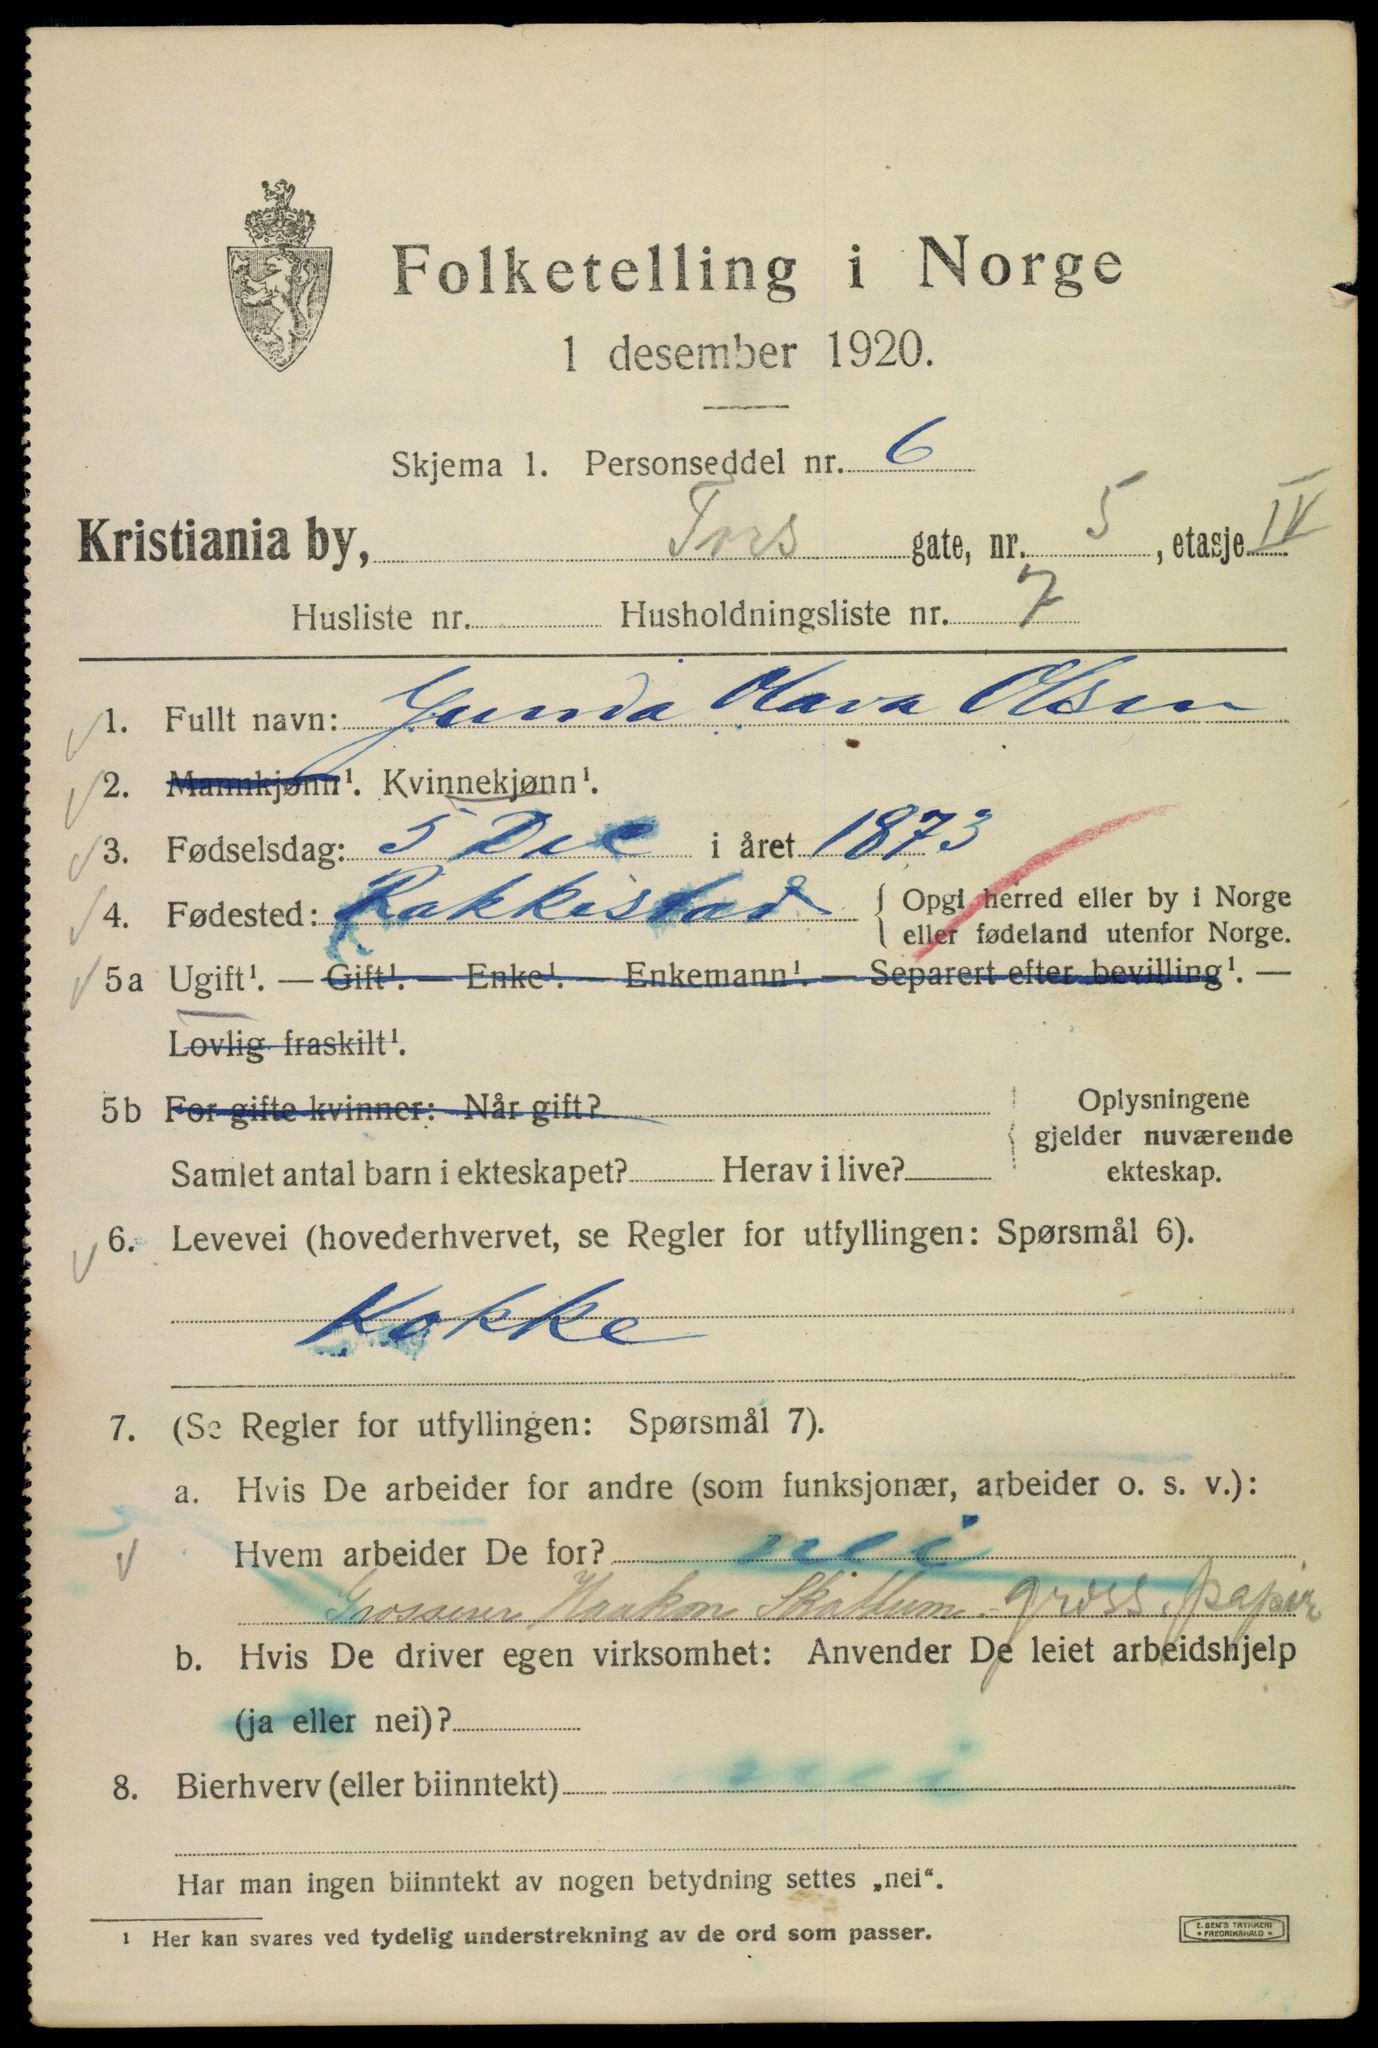 Folketelling i Norge
1 desember 1920.
Skjema 1. Personseddel nr. 6
Kristiania by, Tors gate, nr. 5, etasje IV
Husliste nr. Husholdningsliste nr. 7
1. Fullt navn: Gunda Olava Olsen
2. Mannkjønn¹. Kvinnekjønn¹.
3. Fødselsdag: 5 Dec i året 1873
4. Fødested: Rakkestad { Opgi herred eller by i Norge
eller fødeland utenfor Norge.
5a Ugift¹. — Gift¹. — Enke¹. — Enkemann¹. — Separert efter bevilling¹. —
Lovlig fraskilt¹.
5b For gifte kvinner: Når gift?
Samlet antal barn i ekteskapet? Herav i live?
Oplysningene
gjelder nuværende
ekteskap.
6. Levevei (hovederhvervet, se Regler for utfyllingen: Spørsmål 6).
Kokke
7. (Se Regler for utfyllingen: Spørsmål 7).
a. Hvis De arbeider for andre (som funksjonær, arbeider o. s. v.):
Hvem arbeider De for? nei
Grosserer Haakon Skattum. gross. papir
b. Hvis De driver egen virksomhet: Anvender De leiet arbeidshjelp
(ja eller nei)?
8. Bierhverv (eller biinntekt) nei
Har man ingen biinntekt av nogen betydning settes „nei“.
¹ Her kan svares ved tydelig understrekning av de ord som passer.
E. SEM'S TRYKKERI
* FREDRIKSHALD *